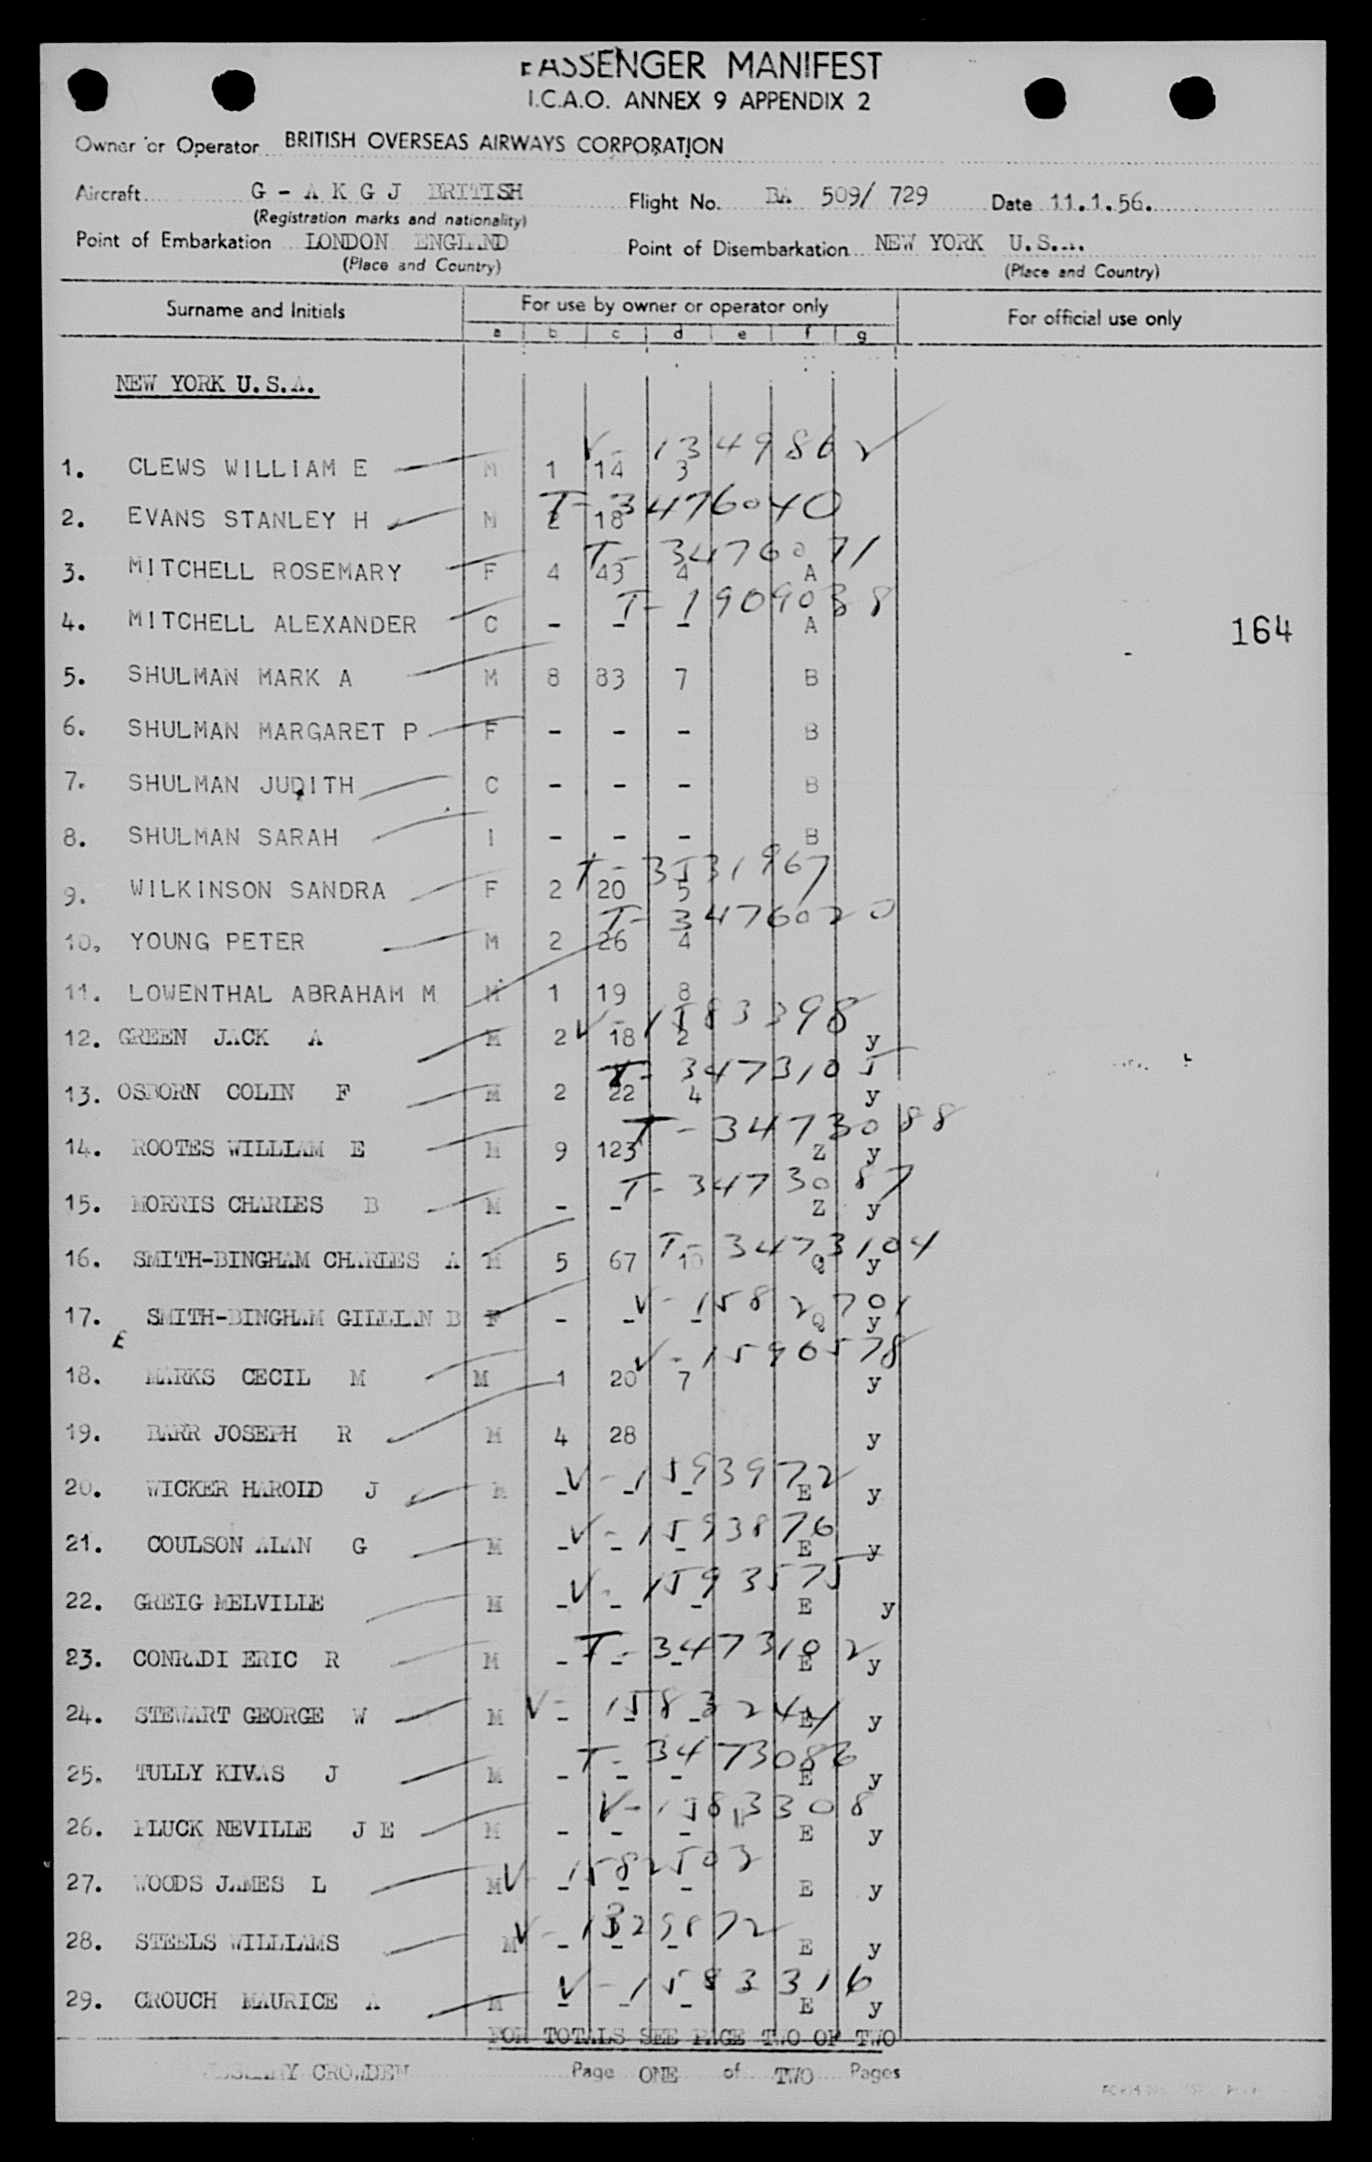 PASSENGER MANIFEST
I.C.A.O. ANNEX 9 APPENDIX 2
Owner or Operator BRITISH OVERSEAS AIRWAYS CORPORATION
Aircraft G - A K G J BRITISH Flight No. BA 509/ 729 Date 11.1.56.
(Registration marks and nationality)
Point of Embarkation LONDON ENGLAND Point of Disembarkation NEW YORK U.S.A.
(Place and Country) (Place and Country)
Surname and Initials For use by owner or operator only For official use only
a b c d e f g
NEW YORK U.S.A.
V - 1349862
1. CLEWS WILLIAM E M 1 14 3
T - 3476040
2. EVANS STANLEY H M 2 18
T - 3476071
3. MITCHELL ROSEMARY F 4 43 4 A
T - 1909038
4. MITCHELL ALEXANDER C - - - A
164
5. SHULMAN MARK A M 8 83 7 B
6. SHULMAN MARGARET P F - - - B
7. SHULMAN JUDITH C - - - B
8. SHULMAN SARAH I - - - B
T - 3531967
9. WILKINSON SANDRA F 2 20 5
T - 3476020
10. YOUNG PETER M 2 26 4
11. LOWENTHAL ABRAHAM M M 1 19 8
V - 1583398
12. GREEN JACK A M 2 18 2 y
T - 3473105
13. OSBORN COLIN F M 2 22 4 y
T - 3473088
14. ROOTES WILLIAM E M 9 123 Z y
T - 3473087
15. MORRIS CHARLES B M - - Z y
T - 3473104
16. SMITH-BINGHAM CHARLES A M 5 67 10 Q y
V - 1582701
17. SMITH-BINGHAM GILLIAN B F - - - Q y
E
V - 1590578
18. MARKS CECIL M M 1 20 7 y
19. BARR JOSEPH R M 4 28 y
V - 1593972
20. WICKER HAROLD J M - - - E y
V - 1593876
21. COULSON ALAN G M - - - E y
V - 1593575
22. GREIG MELVILLE M - - - E y
T - 3473102
23. CONRADI ERIC R M - - - E y
V - 1583244
24. STEWART GEORGE W M - - - E y
T - 3473086
25. TULLY KIVAS J M - - - E y
V - 1583308
26. PLUCK NEVILLE J E M - - - E y
V - 1582503
27. WOODS JAMES L M - - - E y
V - 1329872
28. STEELS WILLIAMS M - - - E y
V - 1583316
29. CROUCH MAURICE A M - - - E y
FOR TOTALS SEE PAGE TWO OF TWO
CROWDEN Page ONE of TWO Pages